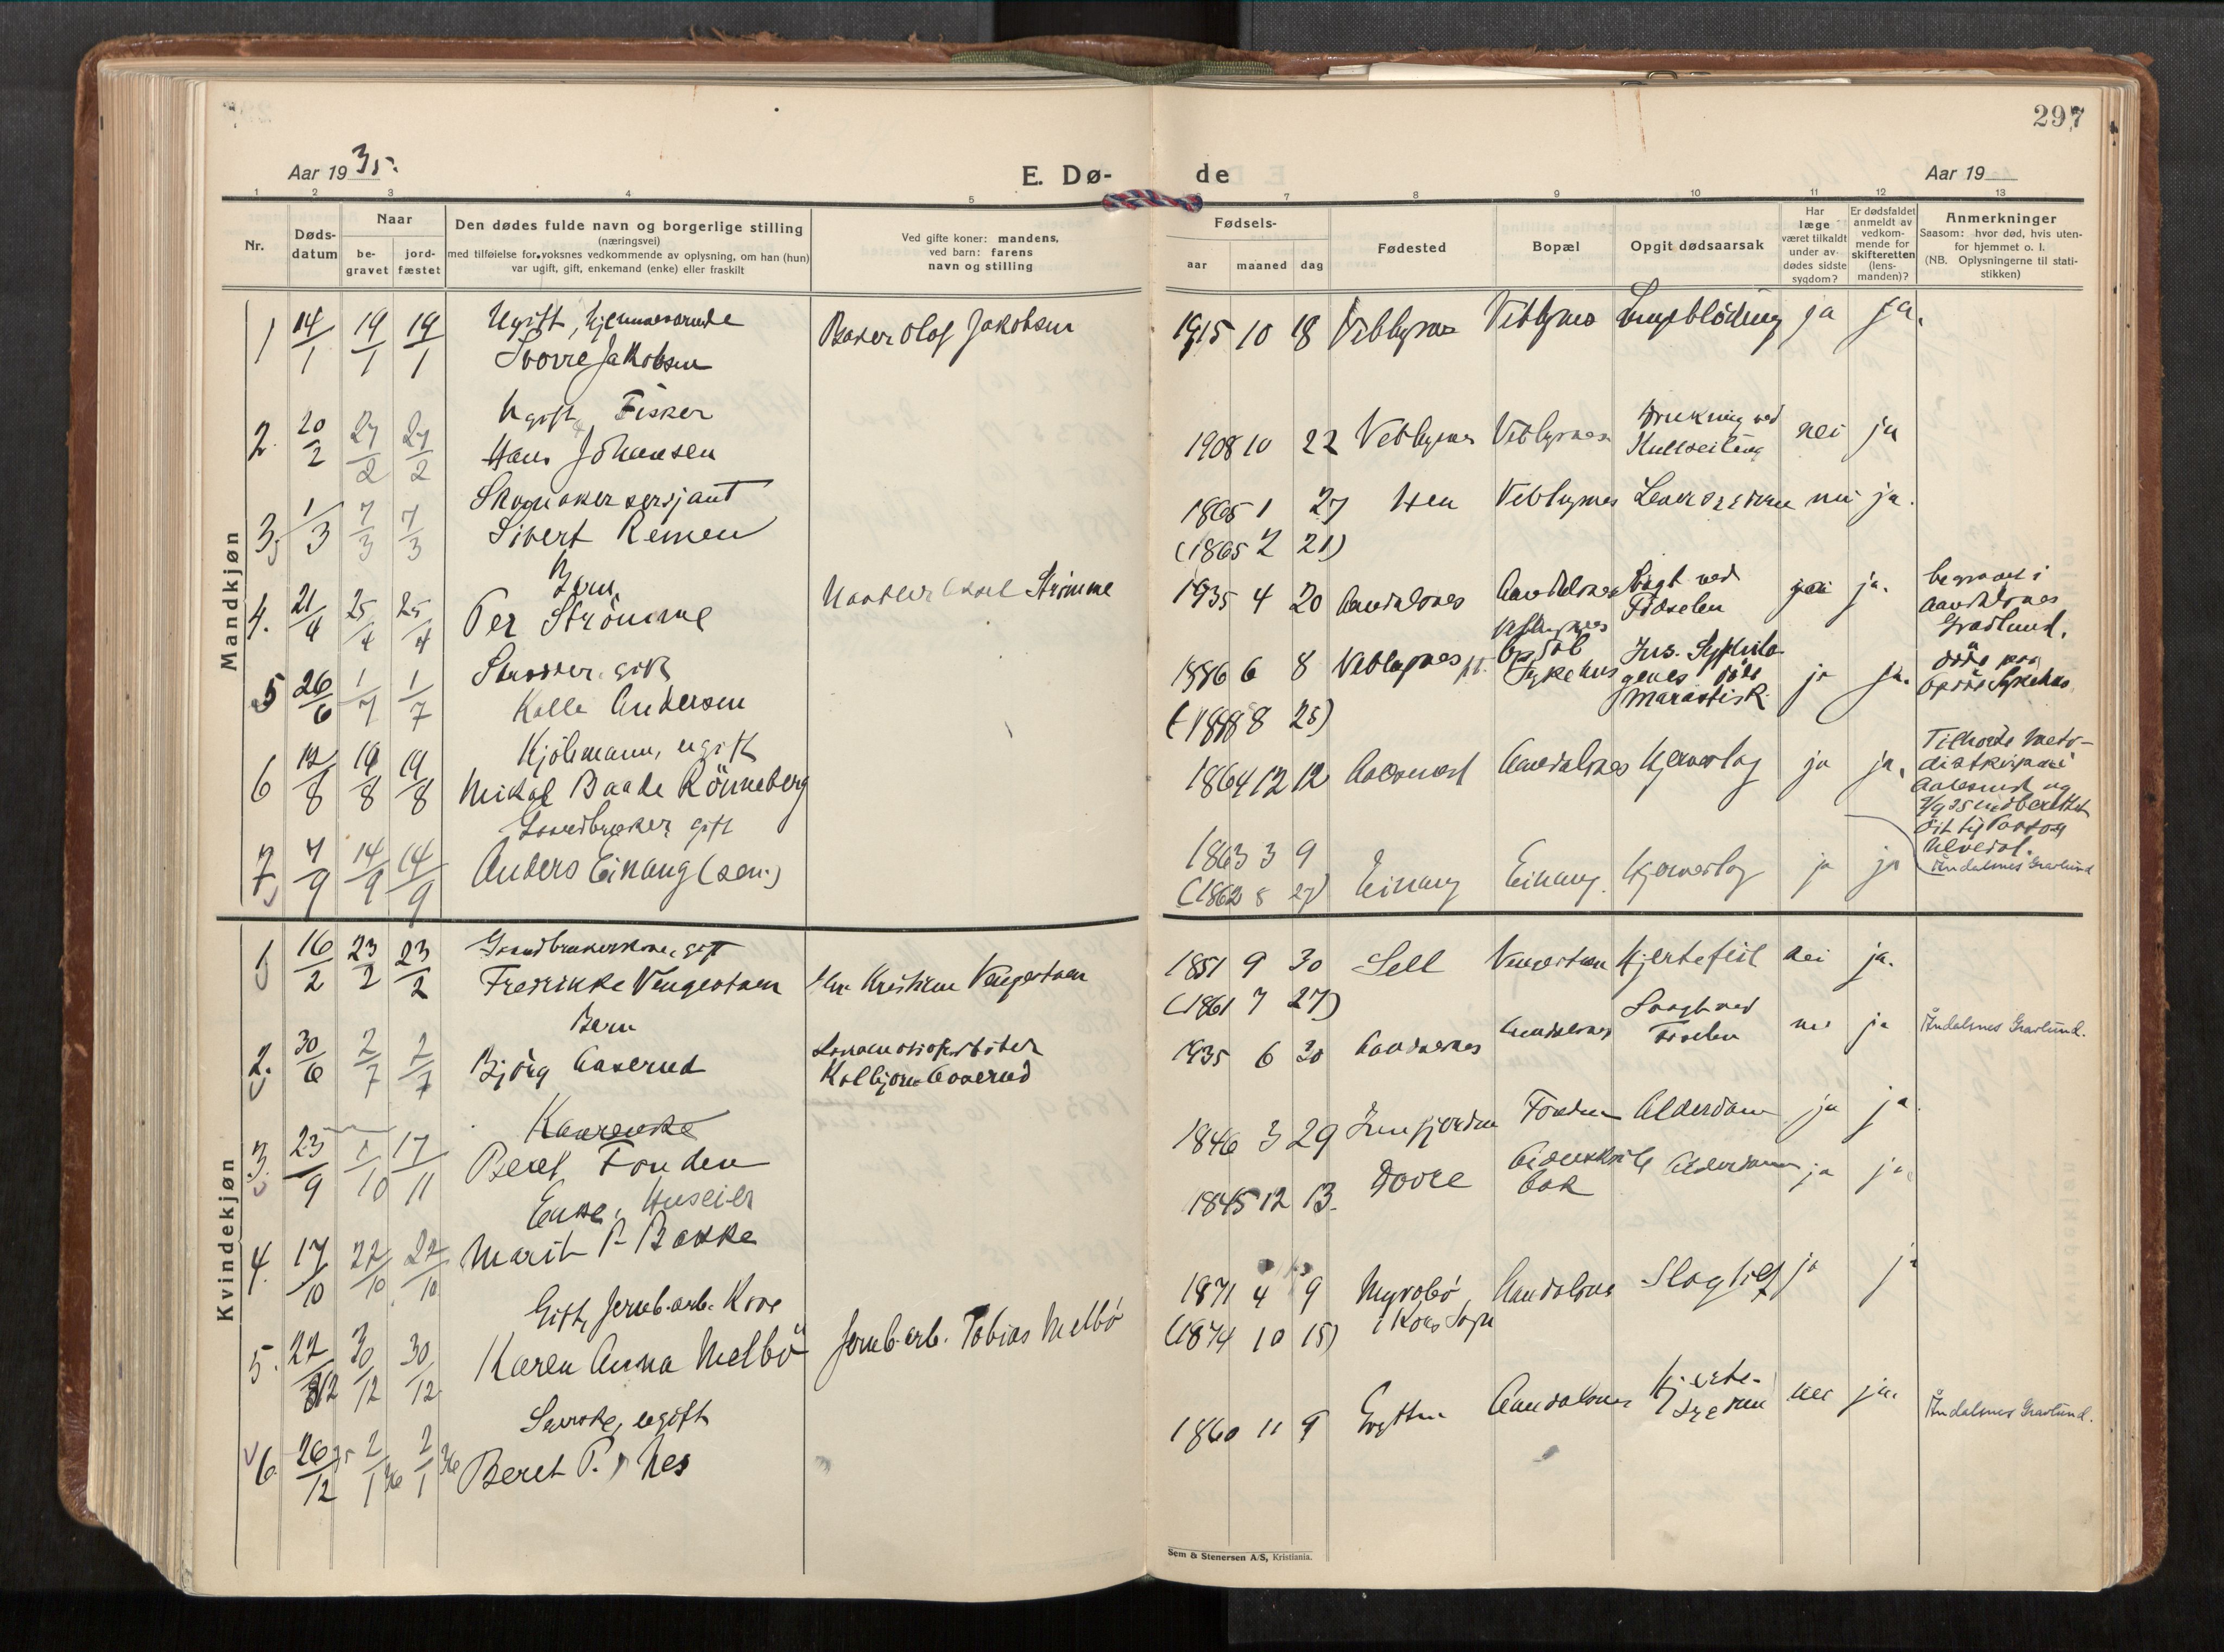 297
Aar 19 35.
E. Dø-
de
Aar 19
1 2 3 4 5 6 7 8 9 10 11 12 13
Nr.
Døds-
datum
Naar
be-
gravet
jord-
fæstet
Den dødes fulde navn og borgerlige stilling
(næringsvei)
med tilføielse for voksnes vedkommende av oplysning, om han (hun)
var ugift, gift, enkemand (enke) eller fraskilt
Ved gifte koner: mandens,
ved barn: farens
navn og stilling
Fødsels-
aar maaned dag
Fødested
Bopæl
Opgit dødsaarsak
Har
læge
været tilkaldt
under av-
dødes sidste
sygdom?
Er dødsfaldet
anmeldt av
vedkom-
mende for
skifteretten
(lens-
manden)?
Anmerkninger
Saasom: hvor død, hvis uten-
for hjemmet o. l.
(NB. Oplysningerne til stati-
stikken)
Mandkjøn
1 14/1 19/1 19/1 Ugift, hjemmeværende
Sverre Jakobsen
Baker Olaf Jakobsen
1915 10 18 Veblungsnes Veblungsnes Lungeblödning ja ja.
2. 20/2 27/2 27/2 Ugift, Fisker
Hans Johansen
1908 10 22 Veblungsnes Veblungsnes Drukning ved
Kullseiling nei ja
3. 1/3 7/3 7/3 Skomaker sersjant
Sivert Remen
1865 1 27 Hen Veblungsnes nei ja.
(1865 2 21)
4. 21/4 25/4 25/4 Barn
Per Strömme
Strömme
1935 4 20 Aandalsnes Aandalsnes Kvalt ved
Födselen ja.
begravet i
Aandalsnes
Gravlund.
5 26/6 1/7 1/7 gift
Kalle Andersen
1886 6 8 Veblungsnes Veblungsnes
Opdöl
Sykehus
marastisk ja ja.
döde paa
Opdöl Sykehus
(1888 25)
6 12/8 19/8 19/8 Kjöbmann, ugift
Nikol Baade Rönneberg
1864 12 12 Aalesund Aandalsnes Hjerneslag ja ja.
Tilhörte meto-
distkirken i
Aalesund og
innberettet
dit til Pastor
Alvedal.
7. 7/9 14/9 14/9 Gaardbruker gift
Anders Einang (sen.)
1863 3 9
(1862 8 27) Einang Einang. Hjerneslag ja ja
Åndalsnes Gravlund
Kvindekjøn
1 16/2 23/2 23/2 Gaardbrukerkone, gift
Fredrikke Vengestaen
Kristian Vengestaen
1851 9 30 Sell Vengestaen Hjertefeil nei ja.
(1861 7 27)
2. 30/6 2/7 2/7 Barn
Björg Aaserud
Lokomotivfyrböter
Kolbjörn Aaserud
1935 6 30 Aandalsnes Aandalsnes Kvalt ved
Födselen nei ja
Åndalsnes Gravlund.
3. 23/9 1/10 17/11 Kaarenke
Beret Fonden
1846 3 29 Innfjorden Fonden Alderdom ja ja
4. 17/10 22/10 22/10 Enke, Huseier
Marit P. Bakke
1845 12 13. Dovre Alderdom ja ja
5. 22/12 30/12 30/12 Gift, Jernb.arb. Kone
Karen Anna Melbö
Jernb.arb. Tobias Melbö
1871 4 9 Myrabö Aandalsnes Slagtilf ja ja
(1874 10 15) i Kors Sogn
6 26/12 35 2/1 36 2/1 36 ugift
Beret P. Nes
1860 11 9 Grytten Aandalsnes Hjerte- nei ja.
Åndalsnes Gravlund.
Sem & Stenersen A/S, Kristiania.